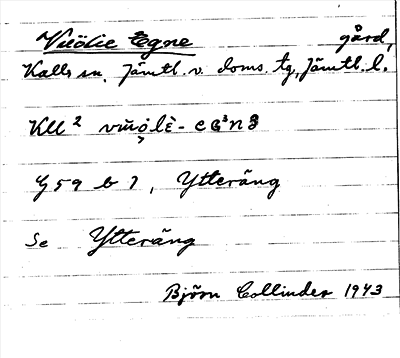 Vüölie Egne gård,
Kalls sn. Jämtl. v. doms. tg, Jämtl. l.
KU²
Y 59 b 7, Ytteräng
Se Ytteräng
Björn Collinder 1943